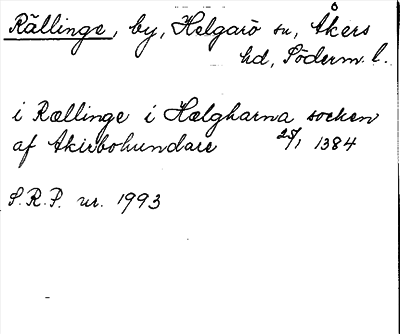 Rällinge, by, Helgarö sn, Åkers
hd, Söderm. l.
i Rællinge i Hælgharna socken
af Akirbohundare 25/1 1384
S.R.P. nr. 1993